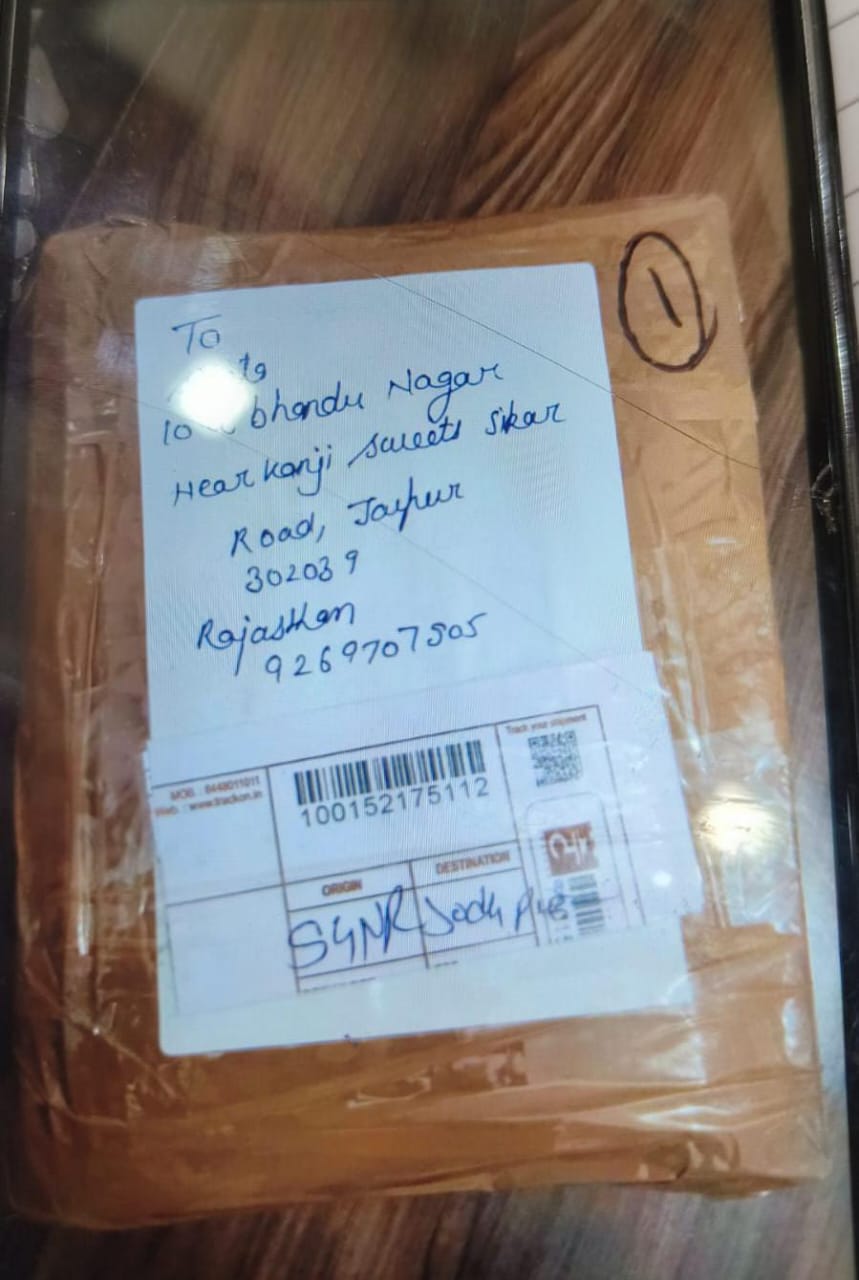 To
10 bhandu Nagar
Near Kanji sweets Sikar
Road, Jaipur
302039
Rajasthan
9269707505
1
MOB.: 8448011011
Web.: www.trackon.in
100152175112
Track your shipment
ORIGIN
DESTINATION
SGNR
Jodhpur